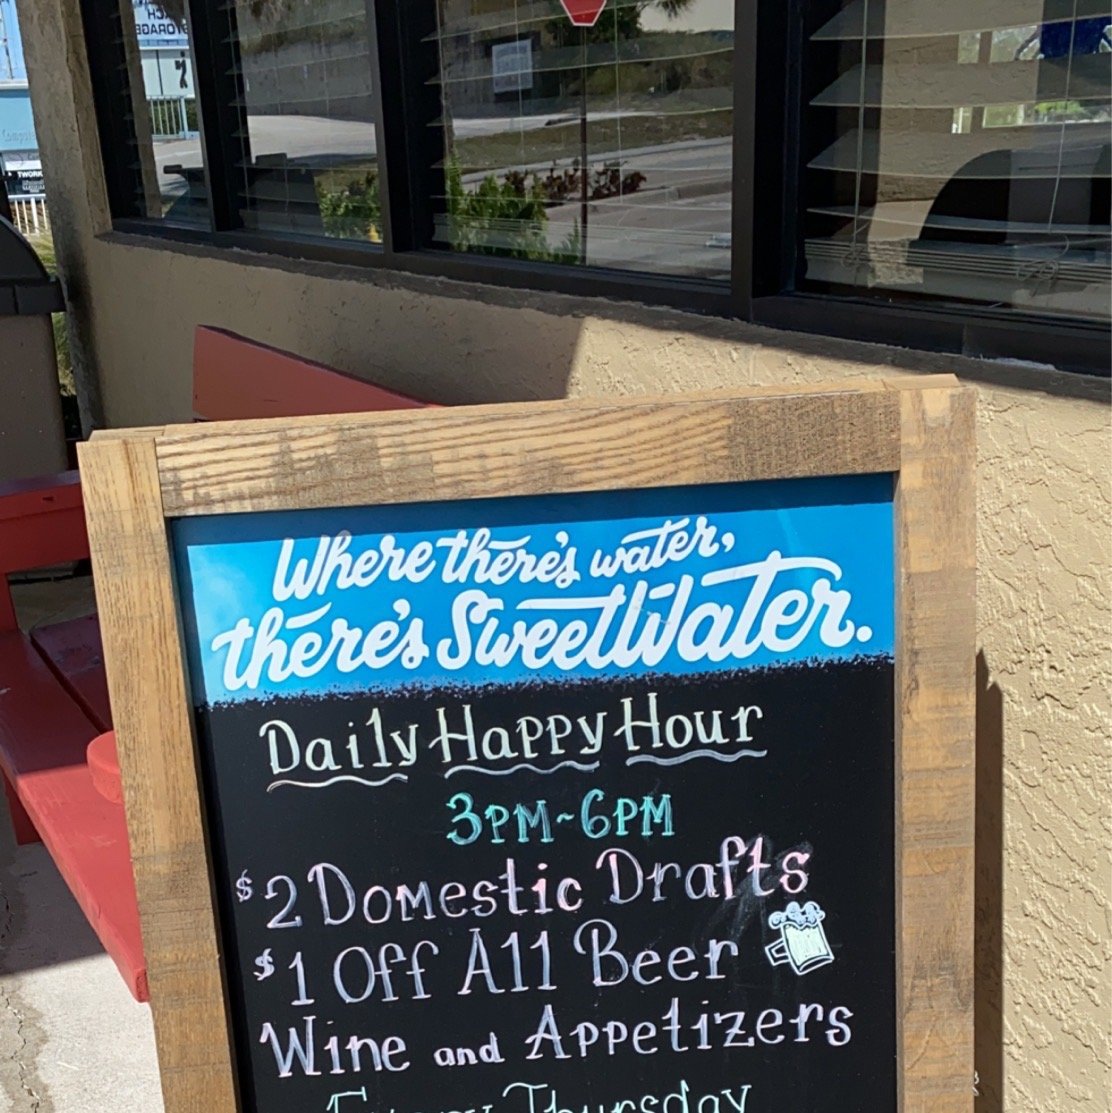 Where there's water,
there's SweetWater.
Daily Happy Hour
3PM~6PM
$2 Domestic Drafts
$1 Off All Beer
Wine and Appetizers
Every Thursday